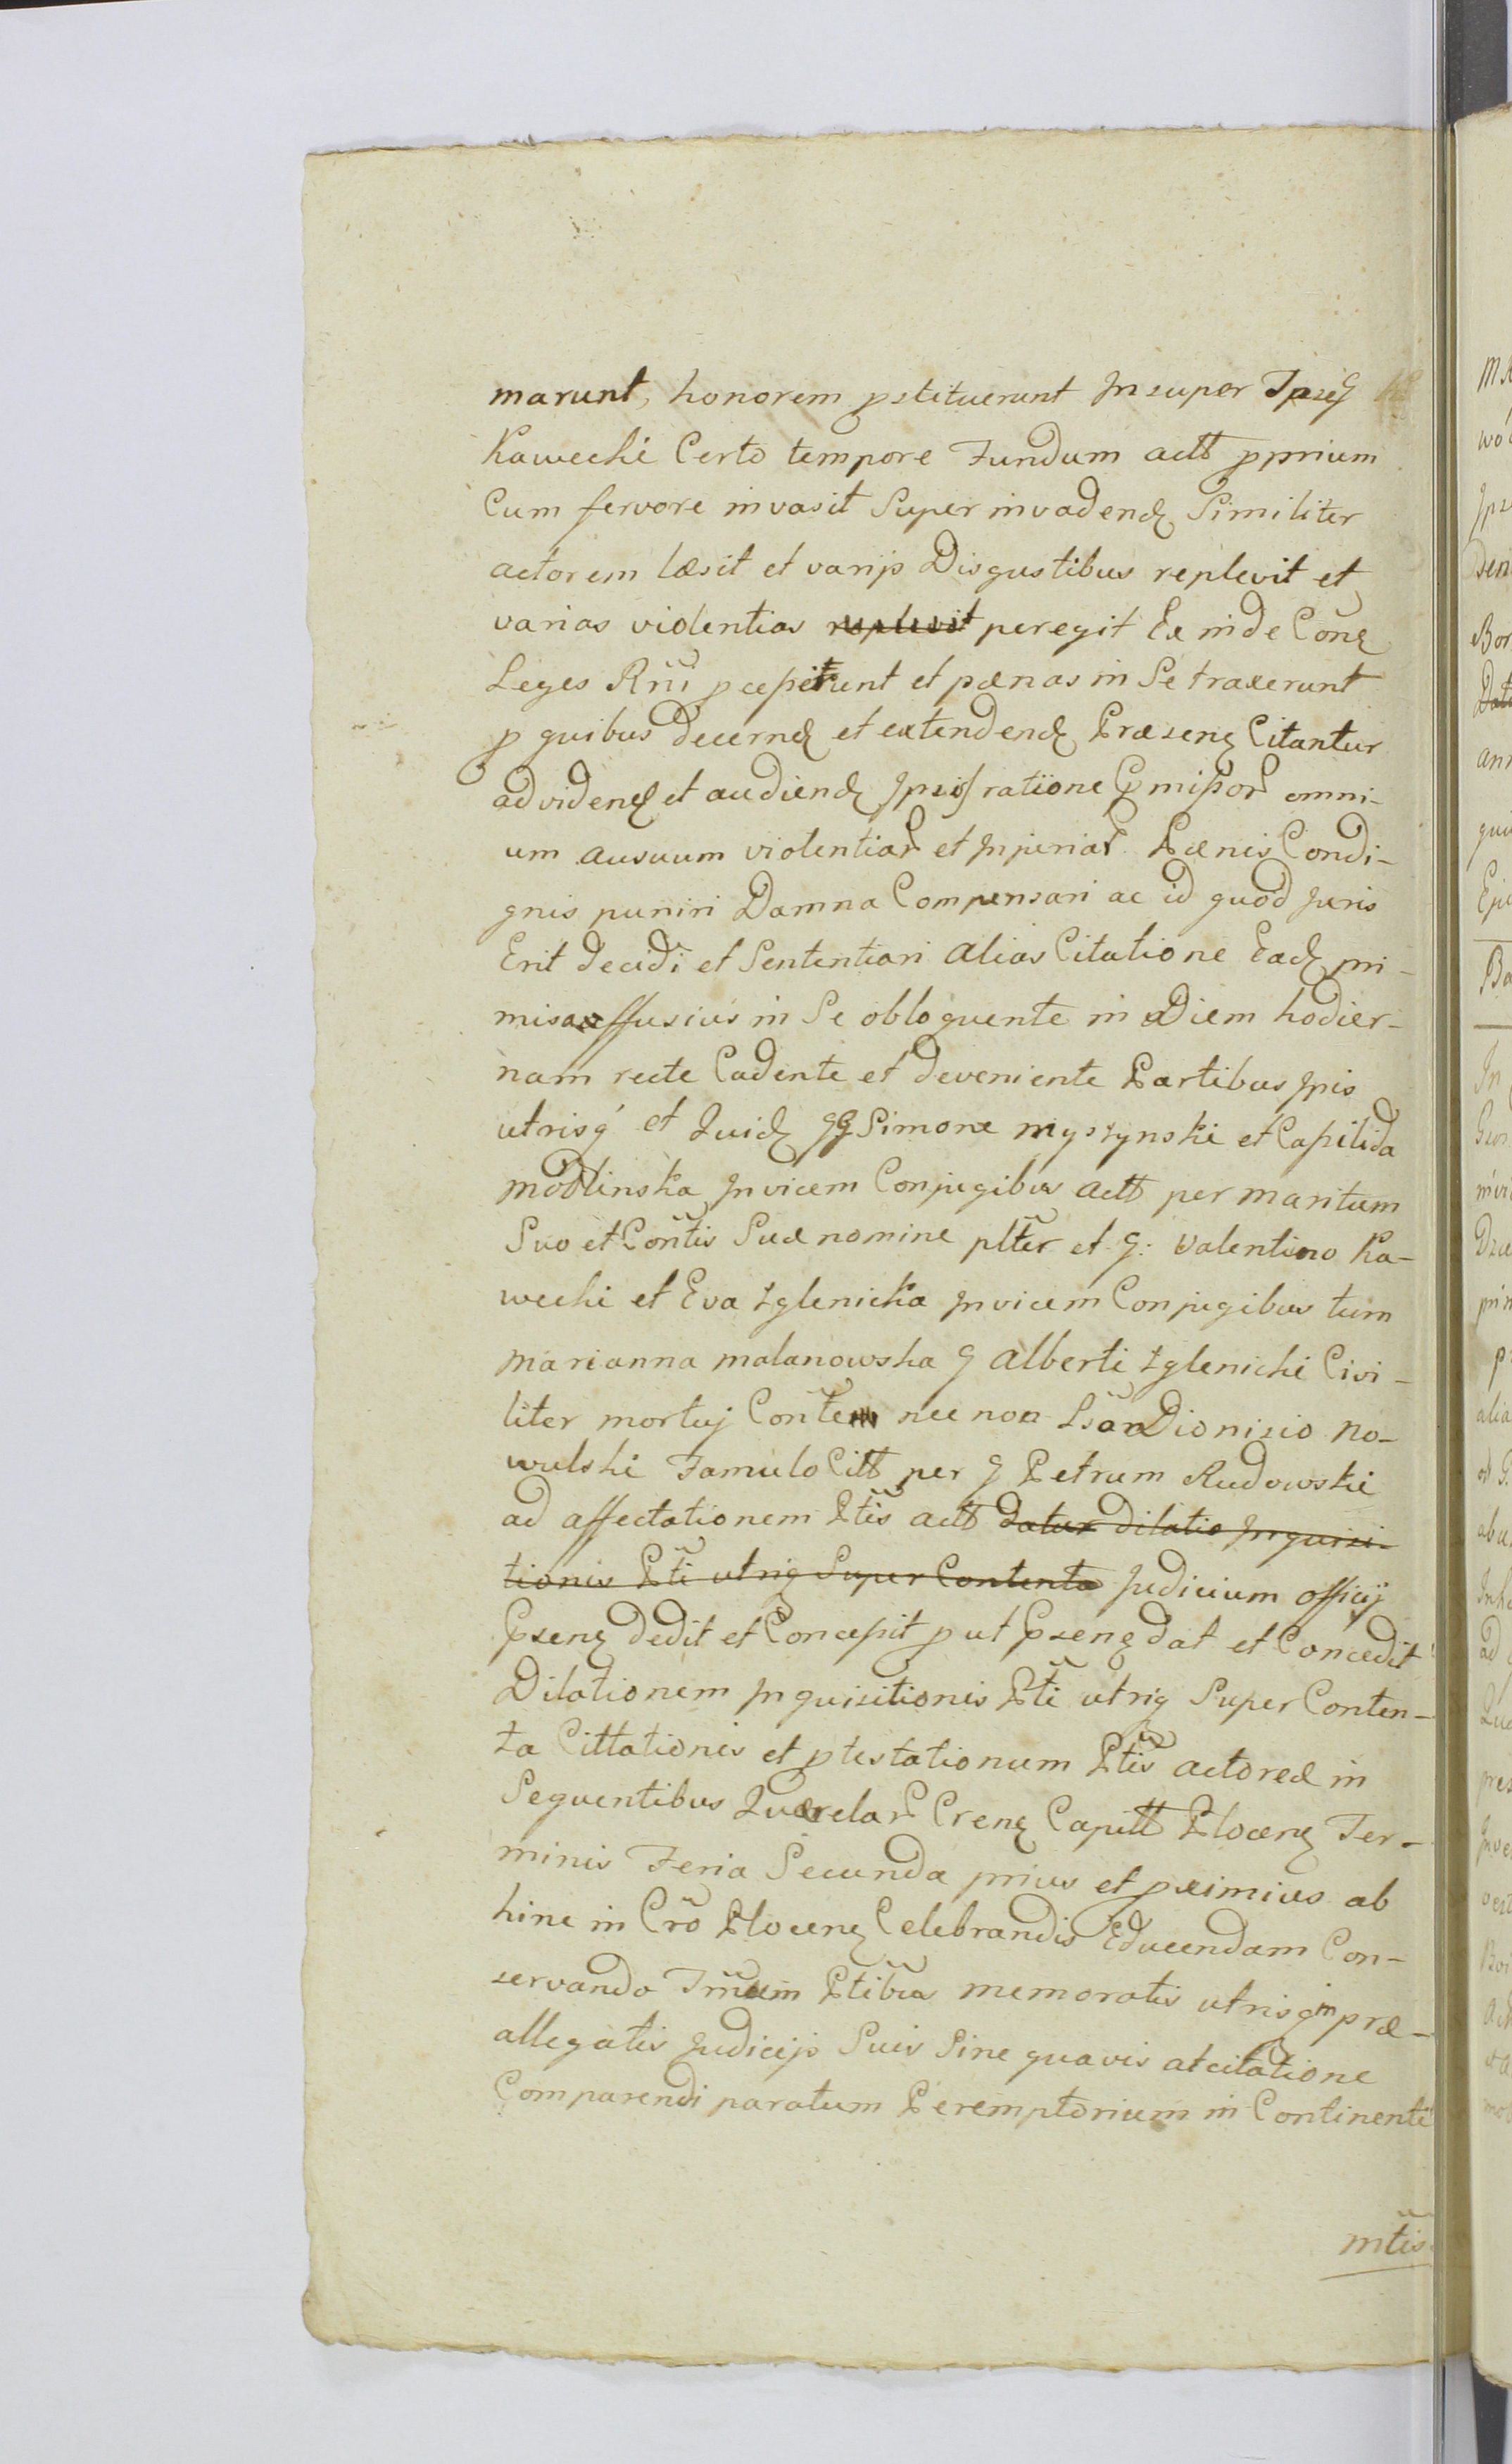 marunt, honorem pstituerunt Insuper Ipse G
Kawecki Certo tempore Fundum actt pprium
Cum fervore invasit Super invadend Similiter
actorem læsit et varijs Disgustibus replevit et
varias violentias replevit peregit Ex inde Cong
Leges Rni pceperunt et pænas in Se traxerunt
p quibus decernd et extendend Præseng Citantur
ad videnđ et audiend Ipsis ratione Pmissor omni-
um ausuum violentiar et Injuriar Pænis Condi-
gnis puniri Damna Compensari ac id quod Juris
Erit decidi et Sententiari alias Citatione Ead pri-
misa effusius in Se obloquente in Diem hodier-
nam recte Cadente et deveniente Partibus Ipis
utrisq et Quid GG Simone Myszynski et Casilida
Modlinska Invicem Conjugibus actt per maritum
Suo et Contis Suæ nomine plter et G: Valentino Ka-
wecki et Eva Zglenicka Invicem Conjugibus tum
Marianna Malanowska G Alberti Zglenicki Civi-
liter mortuj Conte nec non Dionisio No-
wulski Famulo Citt per G Petrum Rudowski
ad affectationem Ptis actt datur dilatio Inquisi-
tionis Pti utriq Super Contenta Judicium officij
Pseng dedit et Concessit p ut Pseng dat et Concedit
Dilationem Inquisitionis Pti utriq Super Conten-
ta Cittationis et ptestationum Ptis actoreæ in
Sequentibus Quærelar Creng Capitt Ploceng Ter-
minis Feria Secunda prius et pximius ab
hinc in Cro Ploceng Celebrandis Educendam Con-
servando Tmum Ptibus memoratis utrisq in præ-
allegatis Judicijs Suis Sine quavis atcitatione
Comparendi paratum Peremptorium in Continenti
mtis